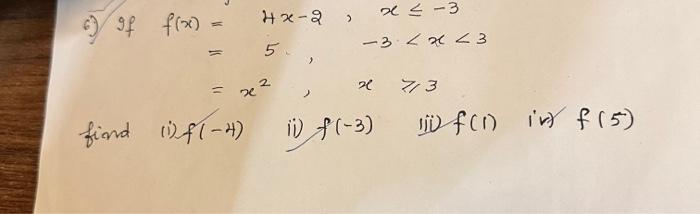 6) If f(x) = 4x-2 , x ≤ -3
= 5 , -3 < x < 3
= x² , x ≥ 3
find (i) f(-4) ii) f(-3) iii) f(1) iv) f(5)